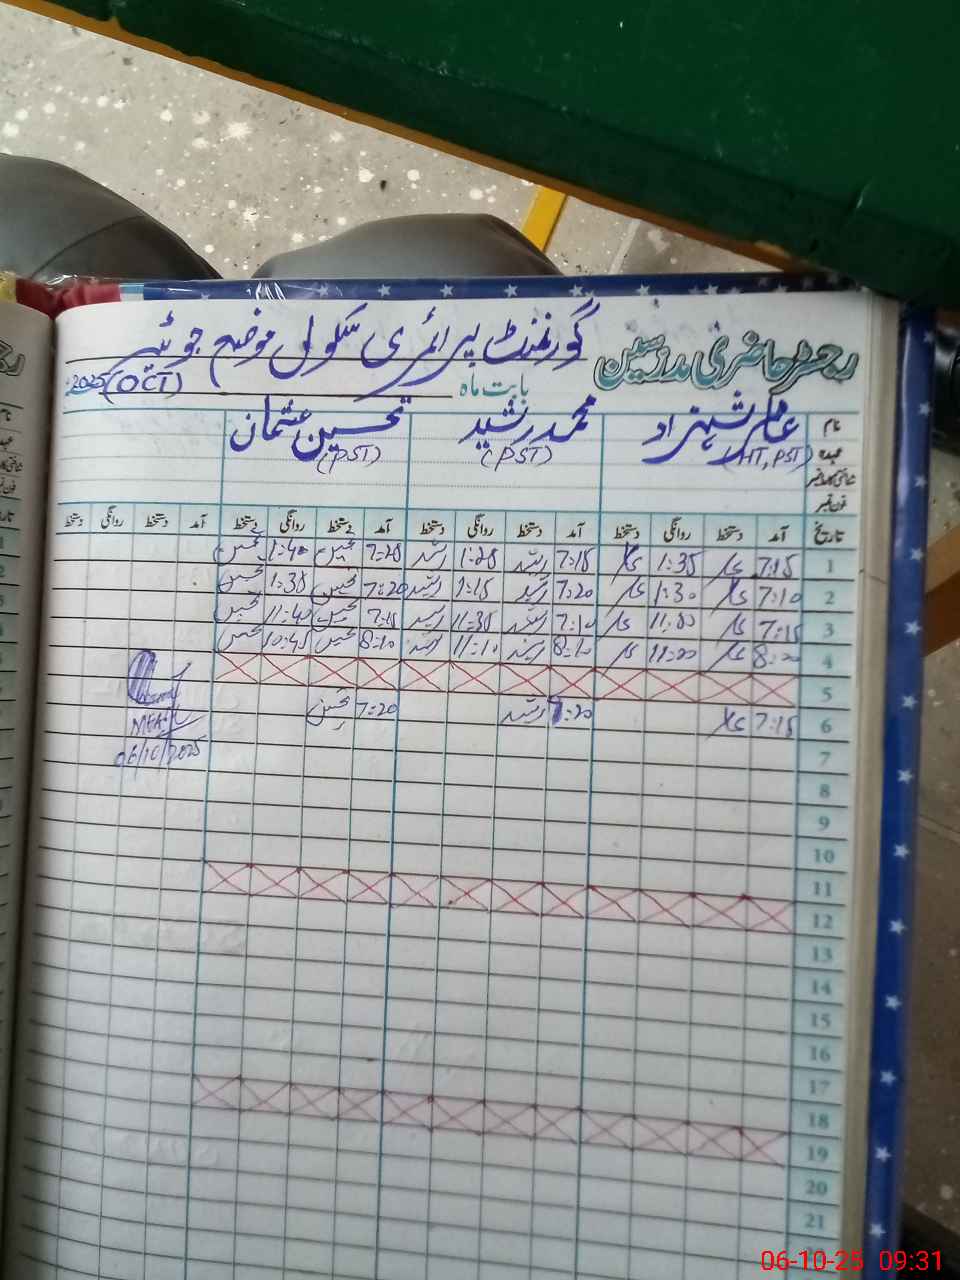 رجسٹر حاضری مدرسین گورنمنٹ پرائمری سکول موضع جوئیہ
بابت ماہ (OCT) 2025
نام عامر شہزاد محمد رشید تحسین عثمان
عہدہ (HT, PST) (PST) (PST)
شناختی کارڈ نمبر
فون نمبر
تاریخ آمد دستخط روانگی دستخط آمد دستخط روانگی دستخط آمد دستخط روانگی دستخط آمد دستخط روانگی دستخط
1 7:15 1:35 7:15 رشید 1:28 رشید 7:20 تحسین 1:40 تحسین
2 7:10 1:30 7:20 رشید 1:15 رشید 7:20 تحسین 1:38 تحسین
3 7:15 11:50 7:10 رشید 11:35 رشید 7:15 تحسین 11:40 تحسین
4 8:20 11:20 8:10 رشید 11:10 رشید 8:10 تحسین 10:45 تحسین
5
6 7:15 7:20 رشید 7:20 تحسین
06/10/2025
7
8
9
10
11
12
13
14
15
16
17
18
19
20
21
06-10-25 09:31